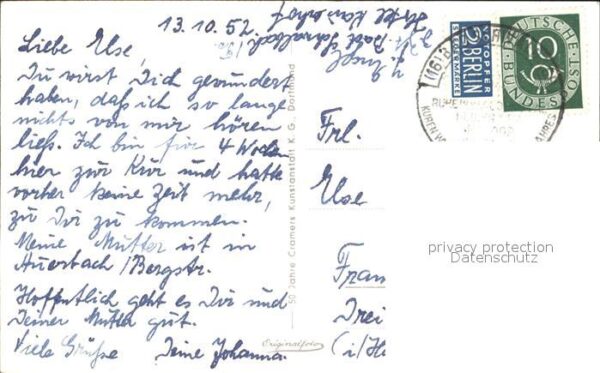 13.10.52
Liebe Else,
Du wirst Dich gewundert
haben, daß ich so lange
nichts von mir hören
ließ. Ich bin für 4 Wochen
hier zur Kur und hatte
vorher keine Zeit mehr,
zu Dir zu kommen.
Meine Mutter ist in
Auerbach/Bergstr.
Hoffentlich geht es Dir und
Deiner Mutter gut.
Viele Grüße Deine Johanna
50 Jahre Cramers Kunstanstalt K.G., Dortmund
Originalfoto
NOTOPFER
2 BERLIN
STEUERMARKE
DEUTSCHE POST
10
BUNDES
(16)
Frl.
Else
Fran
Drei
(i/He
privacy protection
Datenschutz